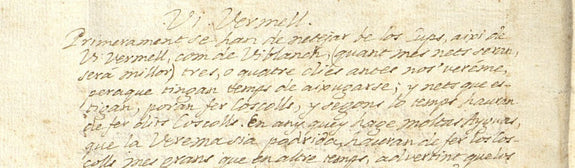 Vi Vermell.
Primerament se han de netejar be los Cups, axi de
Vi Vermell, com de Vi blanch, (quant mes nets seran
sera millor) tres, o quatre dies antes no's vereme,
peraque tingan temps de axugarse; y nets que es-
tigan, poran fer los colls, y segons lo temps hauran
de fer dits Coscolls. En any quey hage moltas Ayguas,
que la Verema sia podrida, hauran de fer los Cos-
colls mes grans que en altre temps, advertint que los